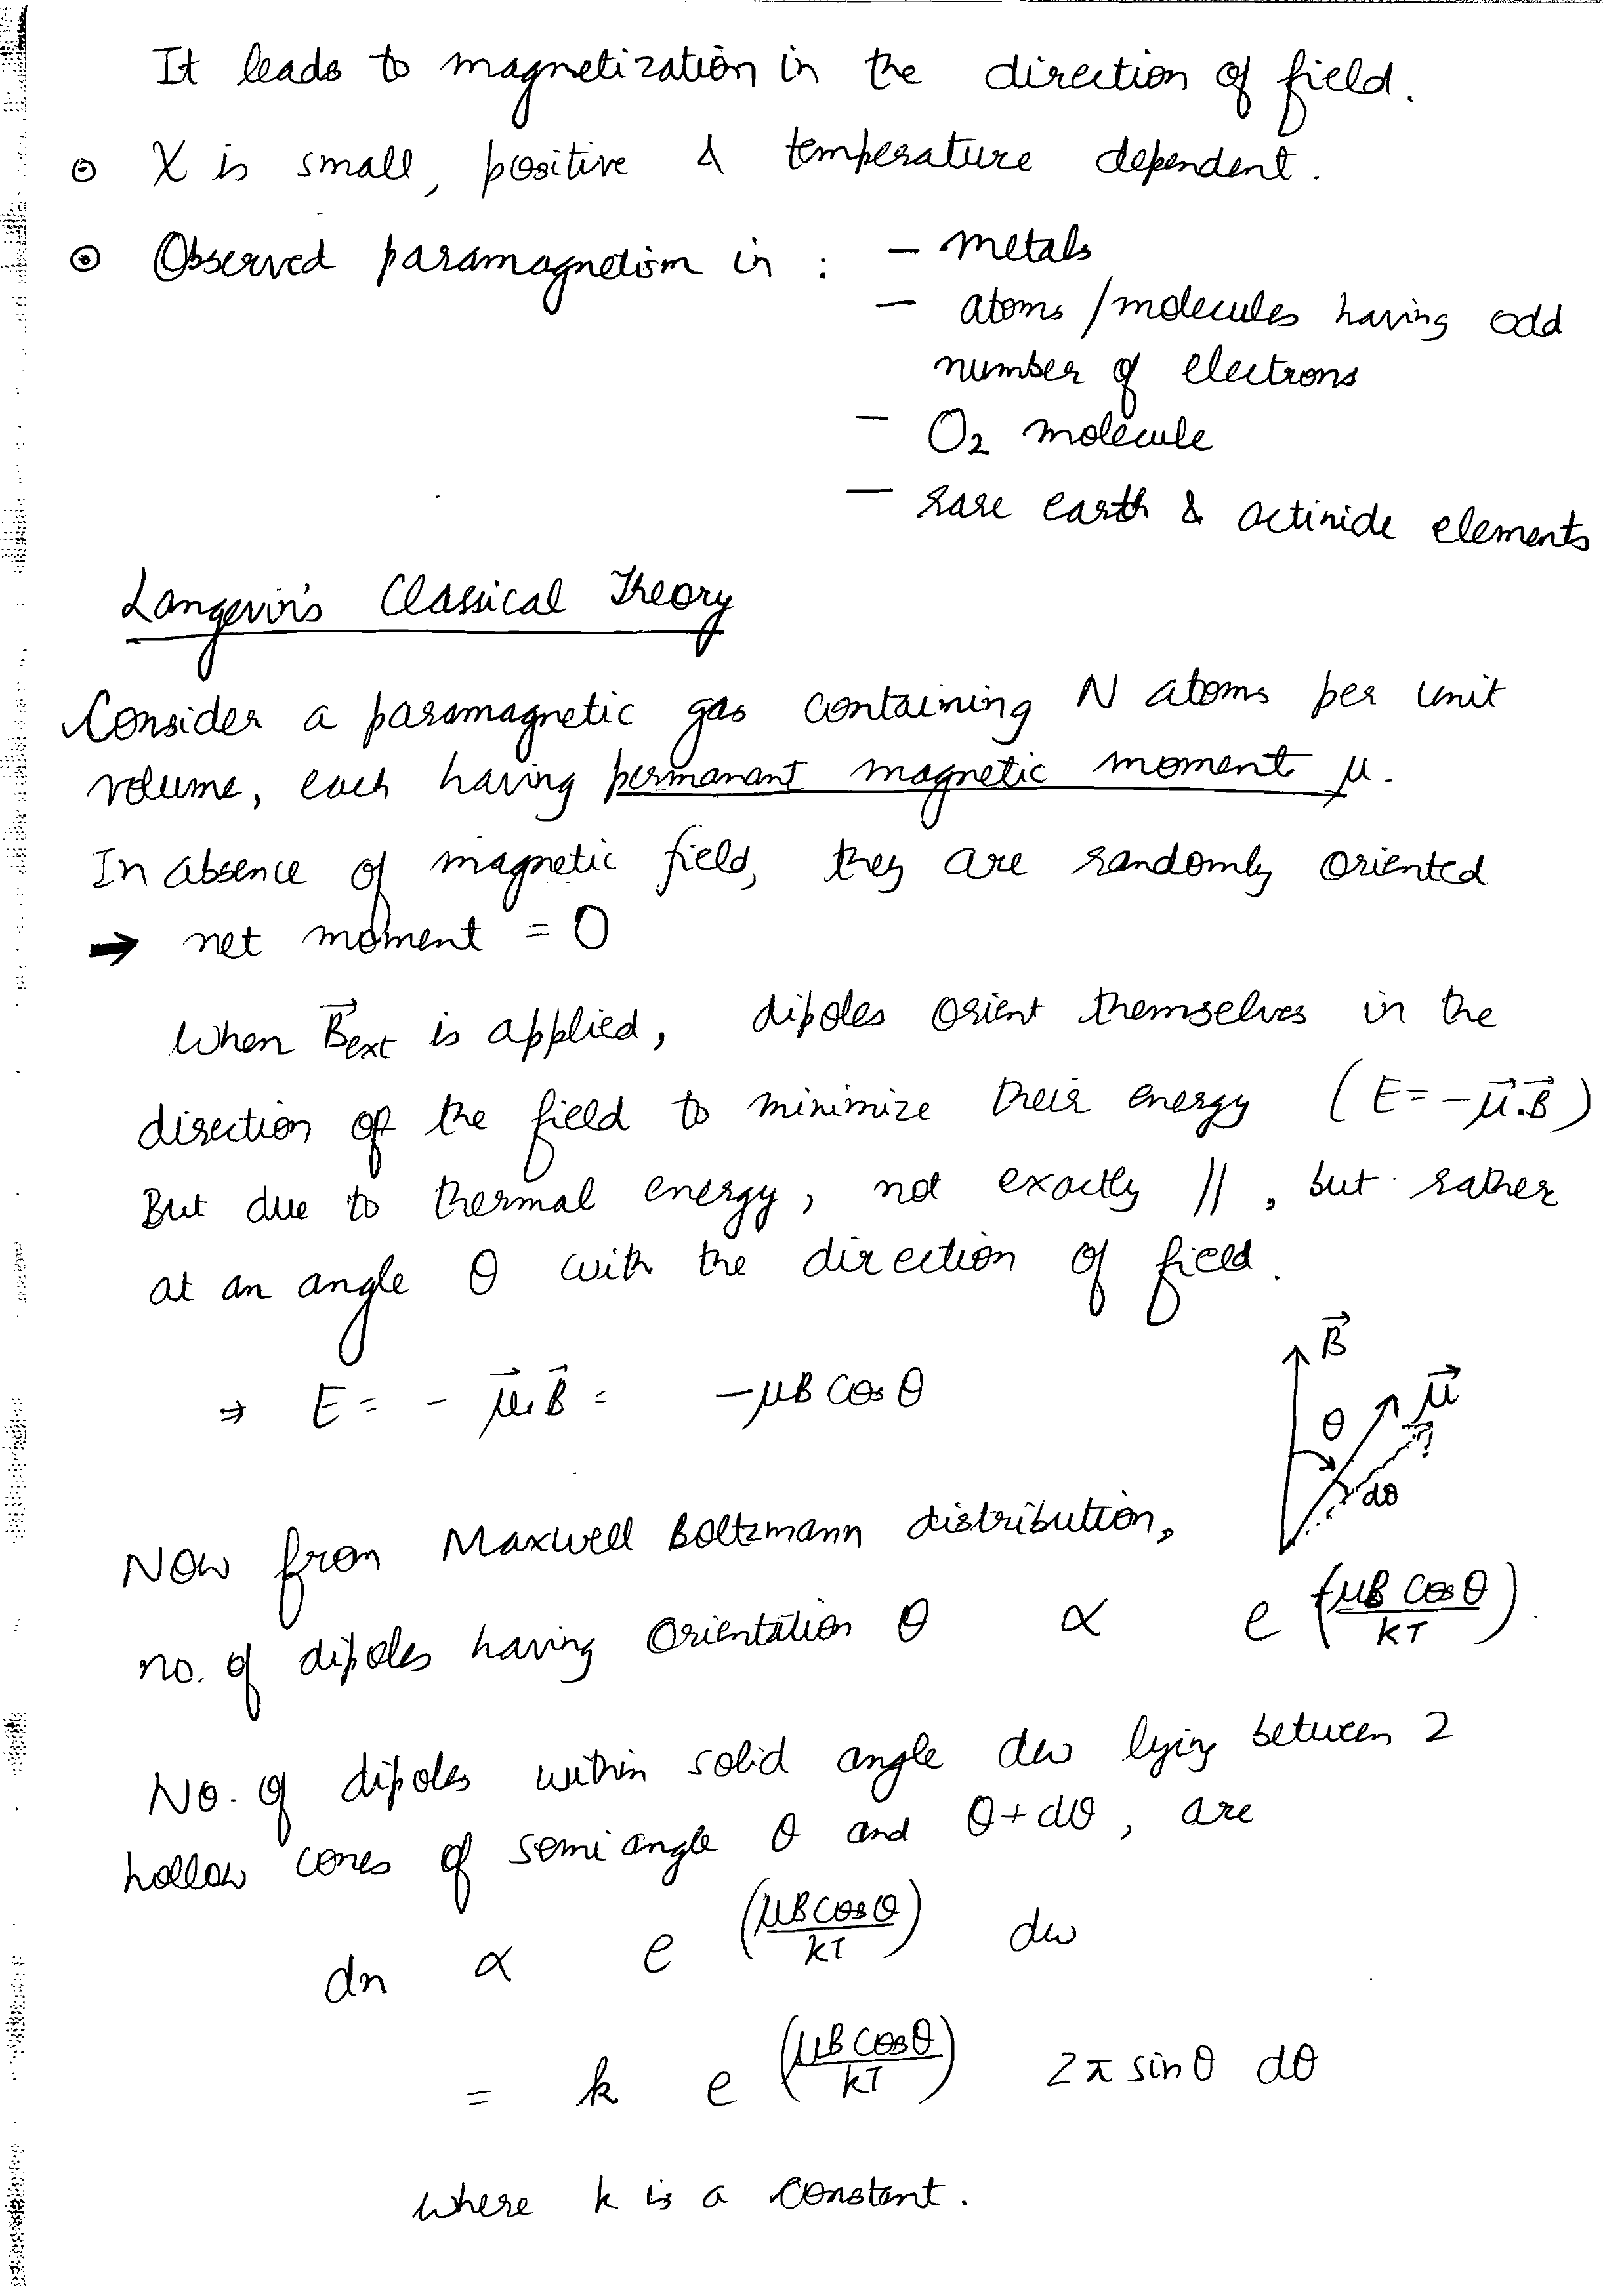 It leads to magnetization in the direction of field.
⊙ χ is small, positive & temperature dependent.
⊙ Observed paramagnetism in : – metals
– atoms/molecules having odd
number of electrons
– O₂ molecule
– rare earth & actinide elements
Langevin's Classical Theory
Consider a paramagnetic gas containing N atoms per unit
volume, each having permanant magnetic moment μ.
In absence of magnetic field, they are randomly oriented
→ net moment = 0
When B⃗ext is applied, dipoles orient themselves in the
direction of the field to minimize their energy (E = -μ⃗.B⃗)
But due to thermal energy, not exactly ||, but rather
at an angle θ with the direction of field.
B⃗
⇒ E = - μ⃗.B⃗ = -μB cos θ
μ⃗
θ
dθ
Now from Maxwell Boltzmann distribution,
no. of dipoles having orientation θ ∝ e^(+μB cosθ/kT)
No. of dipoles within solid angle dω lying between 2
hollow cones of semi angle θ and θ+dθ, are
dn ∝ e^(μB cosθ/kT) dω
= k e^(μB cosθ/kT) 2π sinθ dθ
where k is a constant.